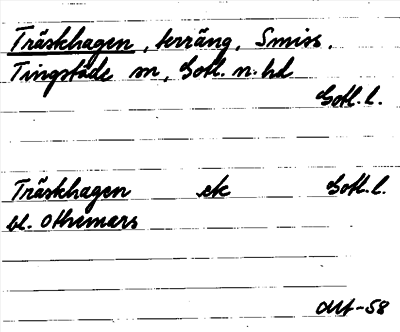 Träskhagen, terräng, Smiss,
Tingstäde sn, Gotl. n. hd
Gotl. l.
Träskhagen ek Gotl. l.
bl. Othemars
-58